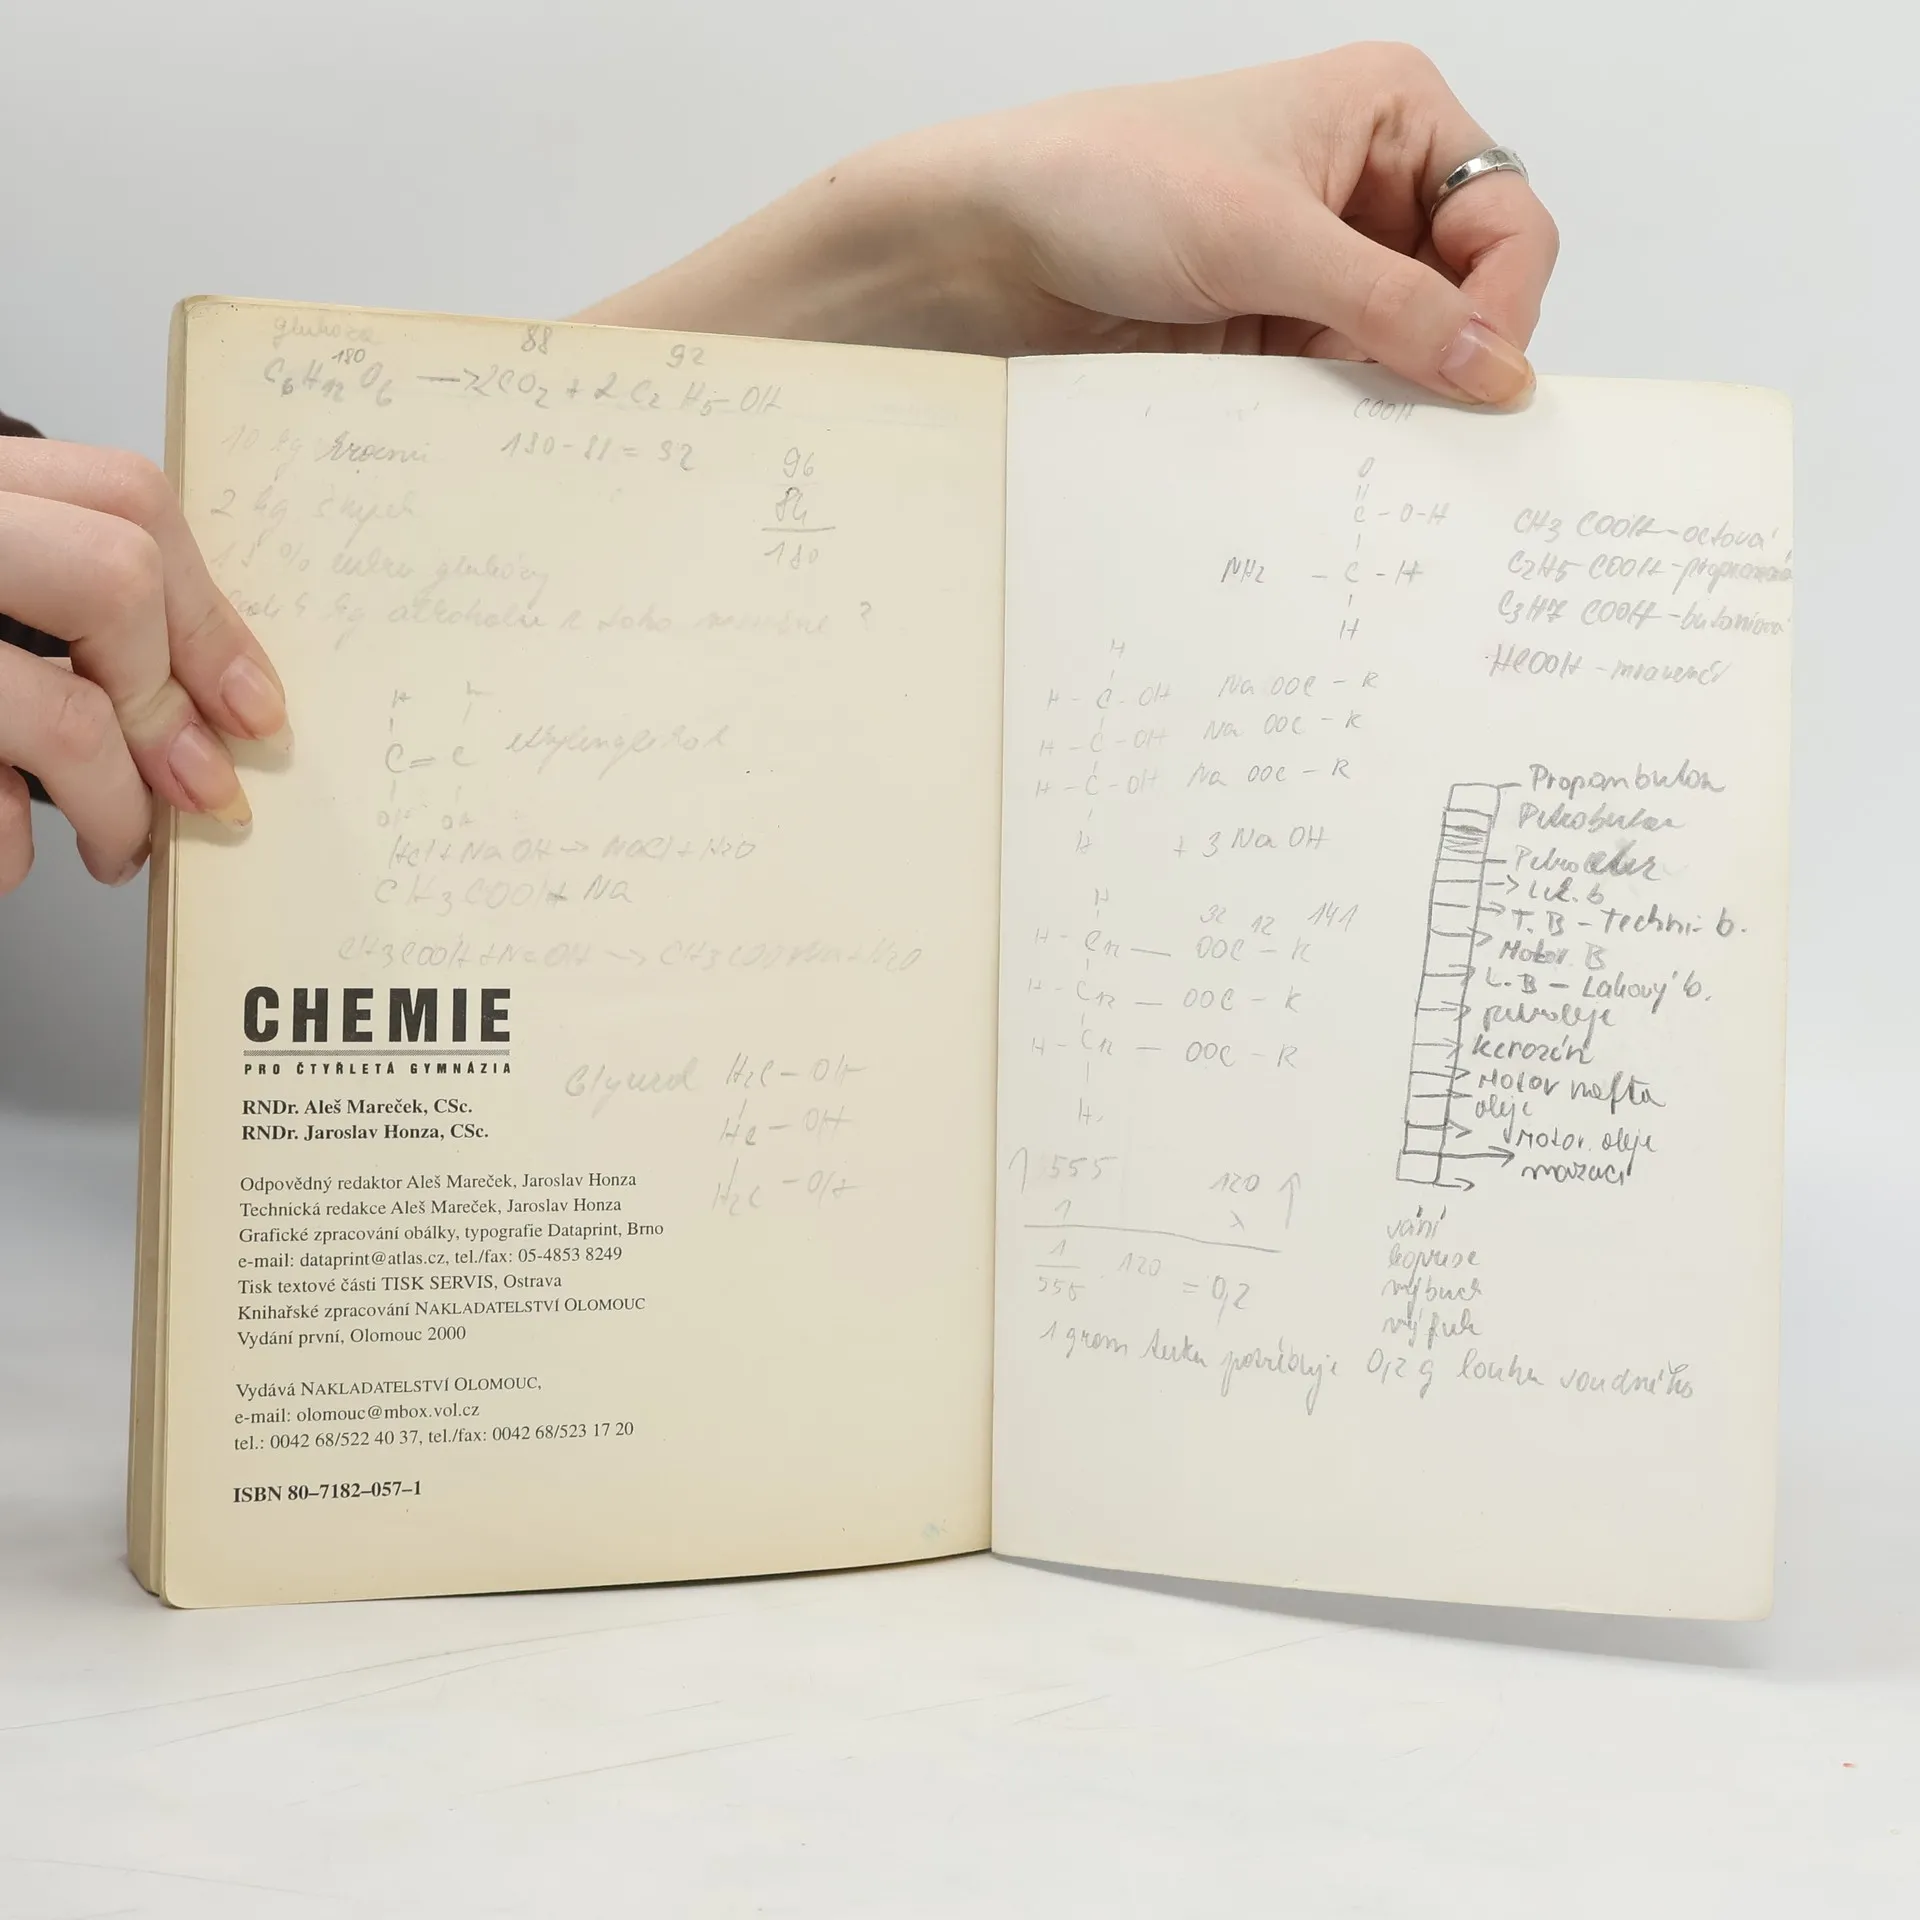 glukoza
180 88 92
C6H12O6 → 2CO2 + 2 C2 H5-OH
10 kg 180-88 = 92 96
2 kg 84
180
18 % cukru glukózy
kg alkoholu z toho ?
H
C = C ethylenglikol
OH OH
HCl + NaOH → NaCl + H2O
CH3COOH + Na
CH3COOH + NaOH → + H2O
CHEMIE
PRO ČTYŘLETÁ GYMNÁZIA
RNDr. Aleš Mareček, CSc.
RNDr. Jaroslav Honza, CSc.
H2C - OH
HC - OH
H2C - OH
Odpovědný redaktor Aleš Mareček, Jaroslav Honza
Technická redakce Aleš Mareček, Jaroslav Honza
Grafické zpracování obálky, typografie Dataprint, Brno
e-mail: dataprint@atlas.cz, tel./fax: 05-4853 8249
Tisk textové části TISK SERVIS, Ostrava
Knihařské zpracování NAKLADATELSTVÍ OLOMOUC
Vydání první, Olomouc 2000
Vydává NAKLADATELSTVÍ OLOMOUC,
e-mail: olomouc@mbox.vol.cz
tel.: 0042 68/522 40 37, tel./fax: 0042 68/523 17 20
ISBN 80–7182–057–1
COOH
O
C - O - H
NH2 - C - H
H
CH3 COOH - octová
C2H5 COOH - propanová
C3H7 COOH - butanová
HCOOH - mravenčí
H
H - C - OH Na OOC - R
H - C - OH Na OOC - R
H - C - OH Na OOC - R
H + 3 NaOH
H 32 12 141
H - C — OOC - R
H - C — OOC - R
H - C — OOC - R
H
Propanbutan
Petroether
Lék. b
T. B - Techni. b.
Motor. B
L. B - Lakový b.
petroleje
kerozín
Motor nafta
oleje
Motor. oleje
mazací
555 120
1 x
1
555 · 120 = 0,2
sání
koprese
výbuch
výfuk
1 gram tuku potřebuje 0,2 g louhu